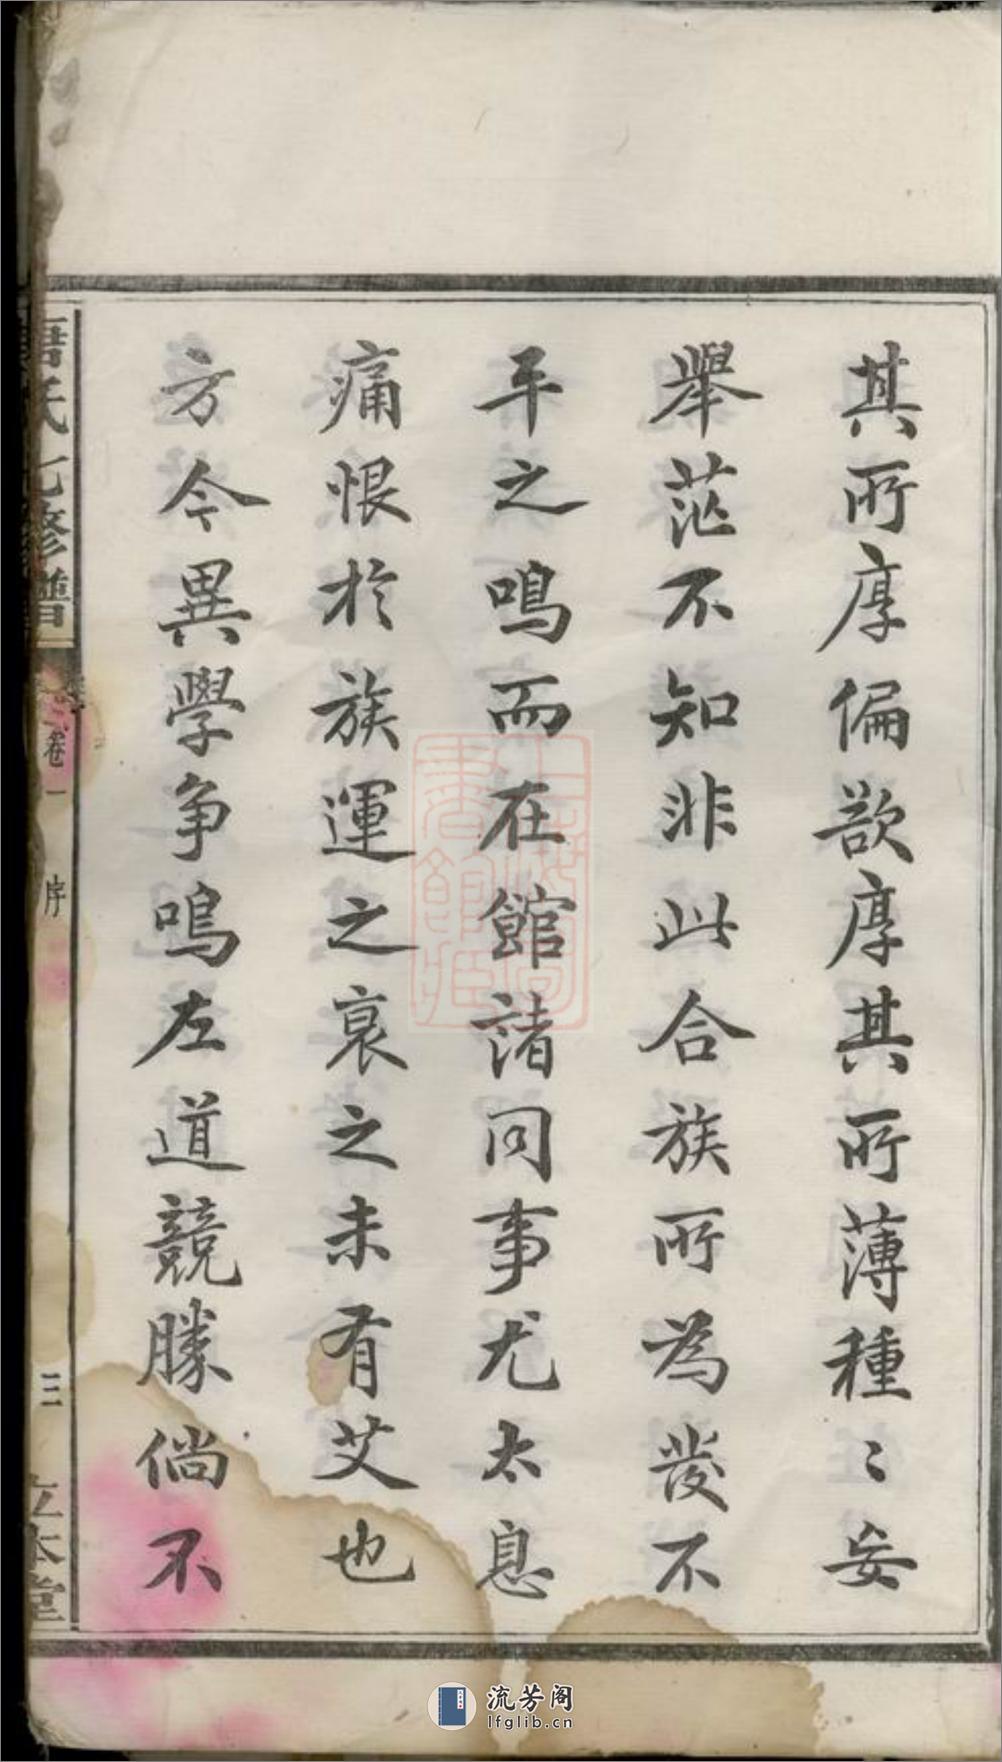 其所厚偏欲厚其所薄種〻妄
舉茫不知非此合族所為發不
平之鳴而在館諸同事尤太息
痛恨於族運之衰之未有艾也
方今異學爭鳴左道競勝倘不
氏七修譜
卷一
序
三
立本堂
流芳阁
lfglib.cn